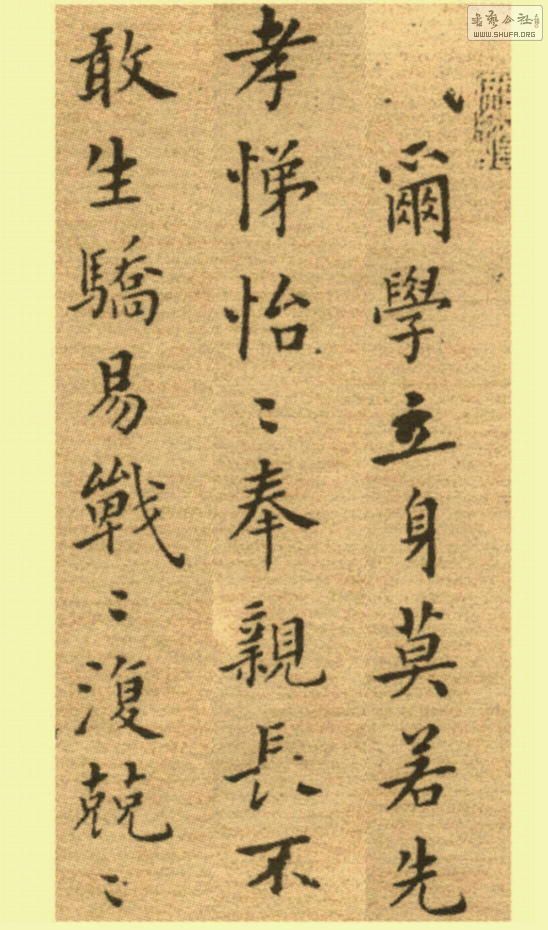 爾學立身莫若先
孝悌怡〻奉親長不
敢生驕易戰〻復兢〻
WWW.SHUFA.ORG